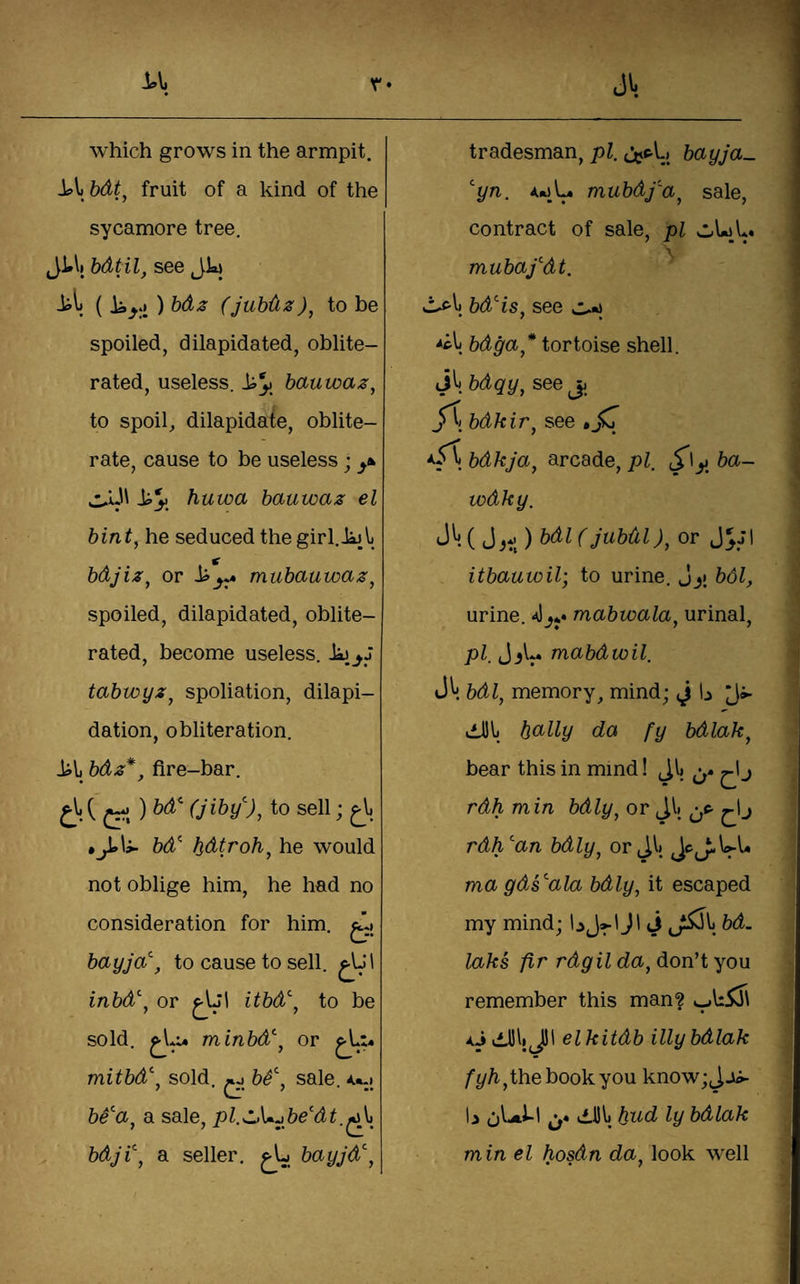 باظ ٣٠ بال
which grows in the armpit.
باط bâṭ, fruit of a kind of the
sycamore tree.
باطل bâṭil, see بطل
باظ ( يبوظ ) bâz (jubûz), to be
spoiled, dilapidated, oblite–
rated, useless. بوّظ bauwaz,
to spoil, dilapidate, oblite–
rate, cause to be useless ; هو
بوّظ البنت huwa bauwaz el
bint, he seduced the girl. بايظ
bâjiz, or مبوّظ mubauwaz,
spoiled, dilapidated, oblite–
rated, become useless. تبويظ
tabwyz, spoliation, dilapi–
dation, obliteration.
باظ bâz*, fire–bar.
باع ( يبيع ) bâʿ (jibyʿ), to sell ; باع
خاطره bâʿ ḫâṭroh, he would
not oblige him, he had no
consideration for him. بيّع
bayjaʿ, to cause to sell. انباع
inbâʿ, or اتباع itbâʿ, to be
sold. منباع minbâʿ, or متباع
mitbâʿ, sold. بيع bêʿ, sale. بيعة
bêʿa, a sale, pl. بيعات beʿât. بايع
bâjiʿ, a seller. بياع bayjâʿ,
tradesman, pl. بياعين bayja–
ʿyn. مبايعة mubâjʿa, sale,
contract of sale, pl مبايعات
mubajʿât.
باعث bâʿis, see بعث
باغة bâġa,* tortoise shell.
باقي bâqy, see بقي
باكر bâkir, see بكره
باكية bâkja, arcade, pl. بواكي ba–
wâky.
بال ( يبول ) bâl (jubûl), or اتبوّل
itbauwil; to urine. بول bôl,
urine. مبولة mabwala, urinal,
pl. مباول mabâwil.
بال bâl, memory, mind; خلّ دا في
بالك ḫally da fy bâlak,
bear this in mind! راح من بالي
râḥ min bâly, or راح عن بالي
râḥ ʿan bâly, or ما جاش على بالي
ma gâśʿala bâly, it escaped
my mind; بالكش في الراجل دا bâ–
lakś fir râgil da, don't you
remember this man? الكتاب
اللي بالك فيه elkitâb illy bâlak
fyh, the book you know; خد لي
بالك من الحصان دا ḫud ly bâlak
min el ḥoṣân da, look well